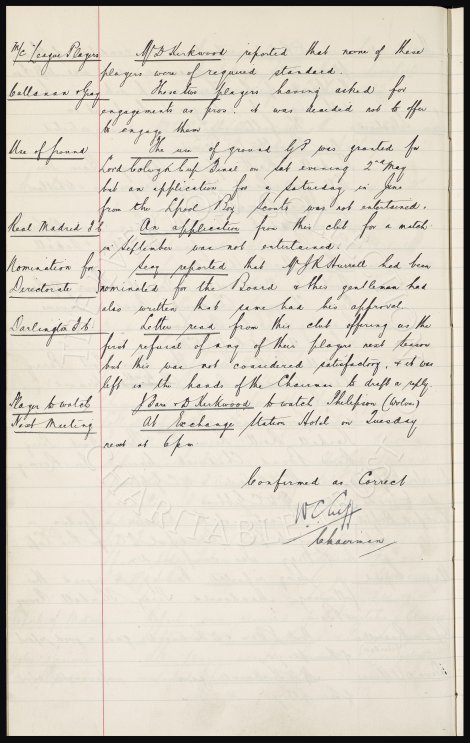 M/c League Players Mr D Kirkwood reported that none of these
players were of required standard.
Callanan & Gray These two players having asked for
engagements as pros. it was decided not to offer
to engage them
Use of ground The use of ground GP was granted for
Lord Cup Final on Sat evening 2nd May
but an application for a Saturday in June
from the Lpool Boy Scouts was not entertained.
Real Madrid F.C An application from this club for a match
in September was not entertained.
Nomination for Secy reported that Mr J R had been
Directorate nominated for the Board & this gentleman had
also written that same had his approval.
Darlington F.C. Letter read from this club offering us the
first refusal of any of their players next season
but this was not considered satisfactory, & it was
left in the hands of the Chairman to draft a reply.
Player to watch J Bare & D Kirkwood to watch Philipson (Wolves)
Next Meeting At Exchange Station Hotel on Tuesday
next at 6 pm.
Confirmed as Correct
W.C. Cuff
Chairman
CHARITABLE